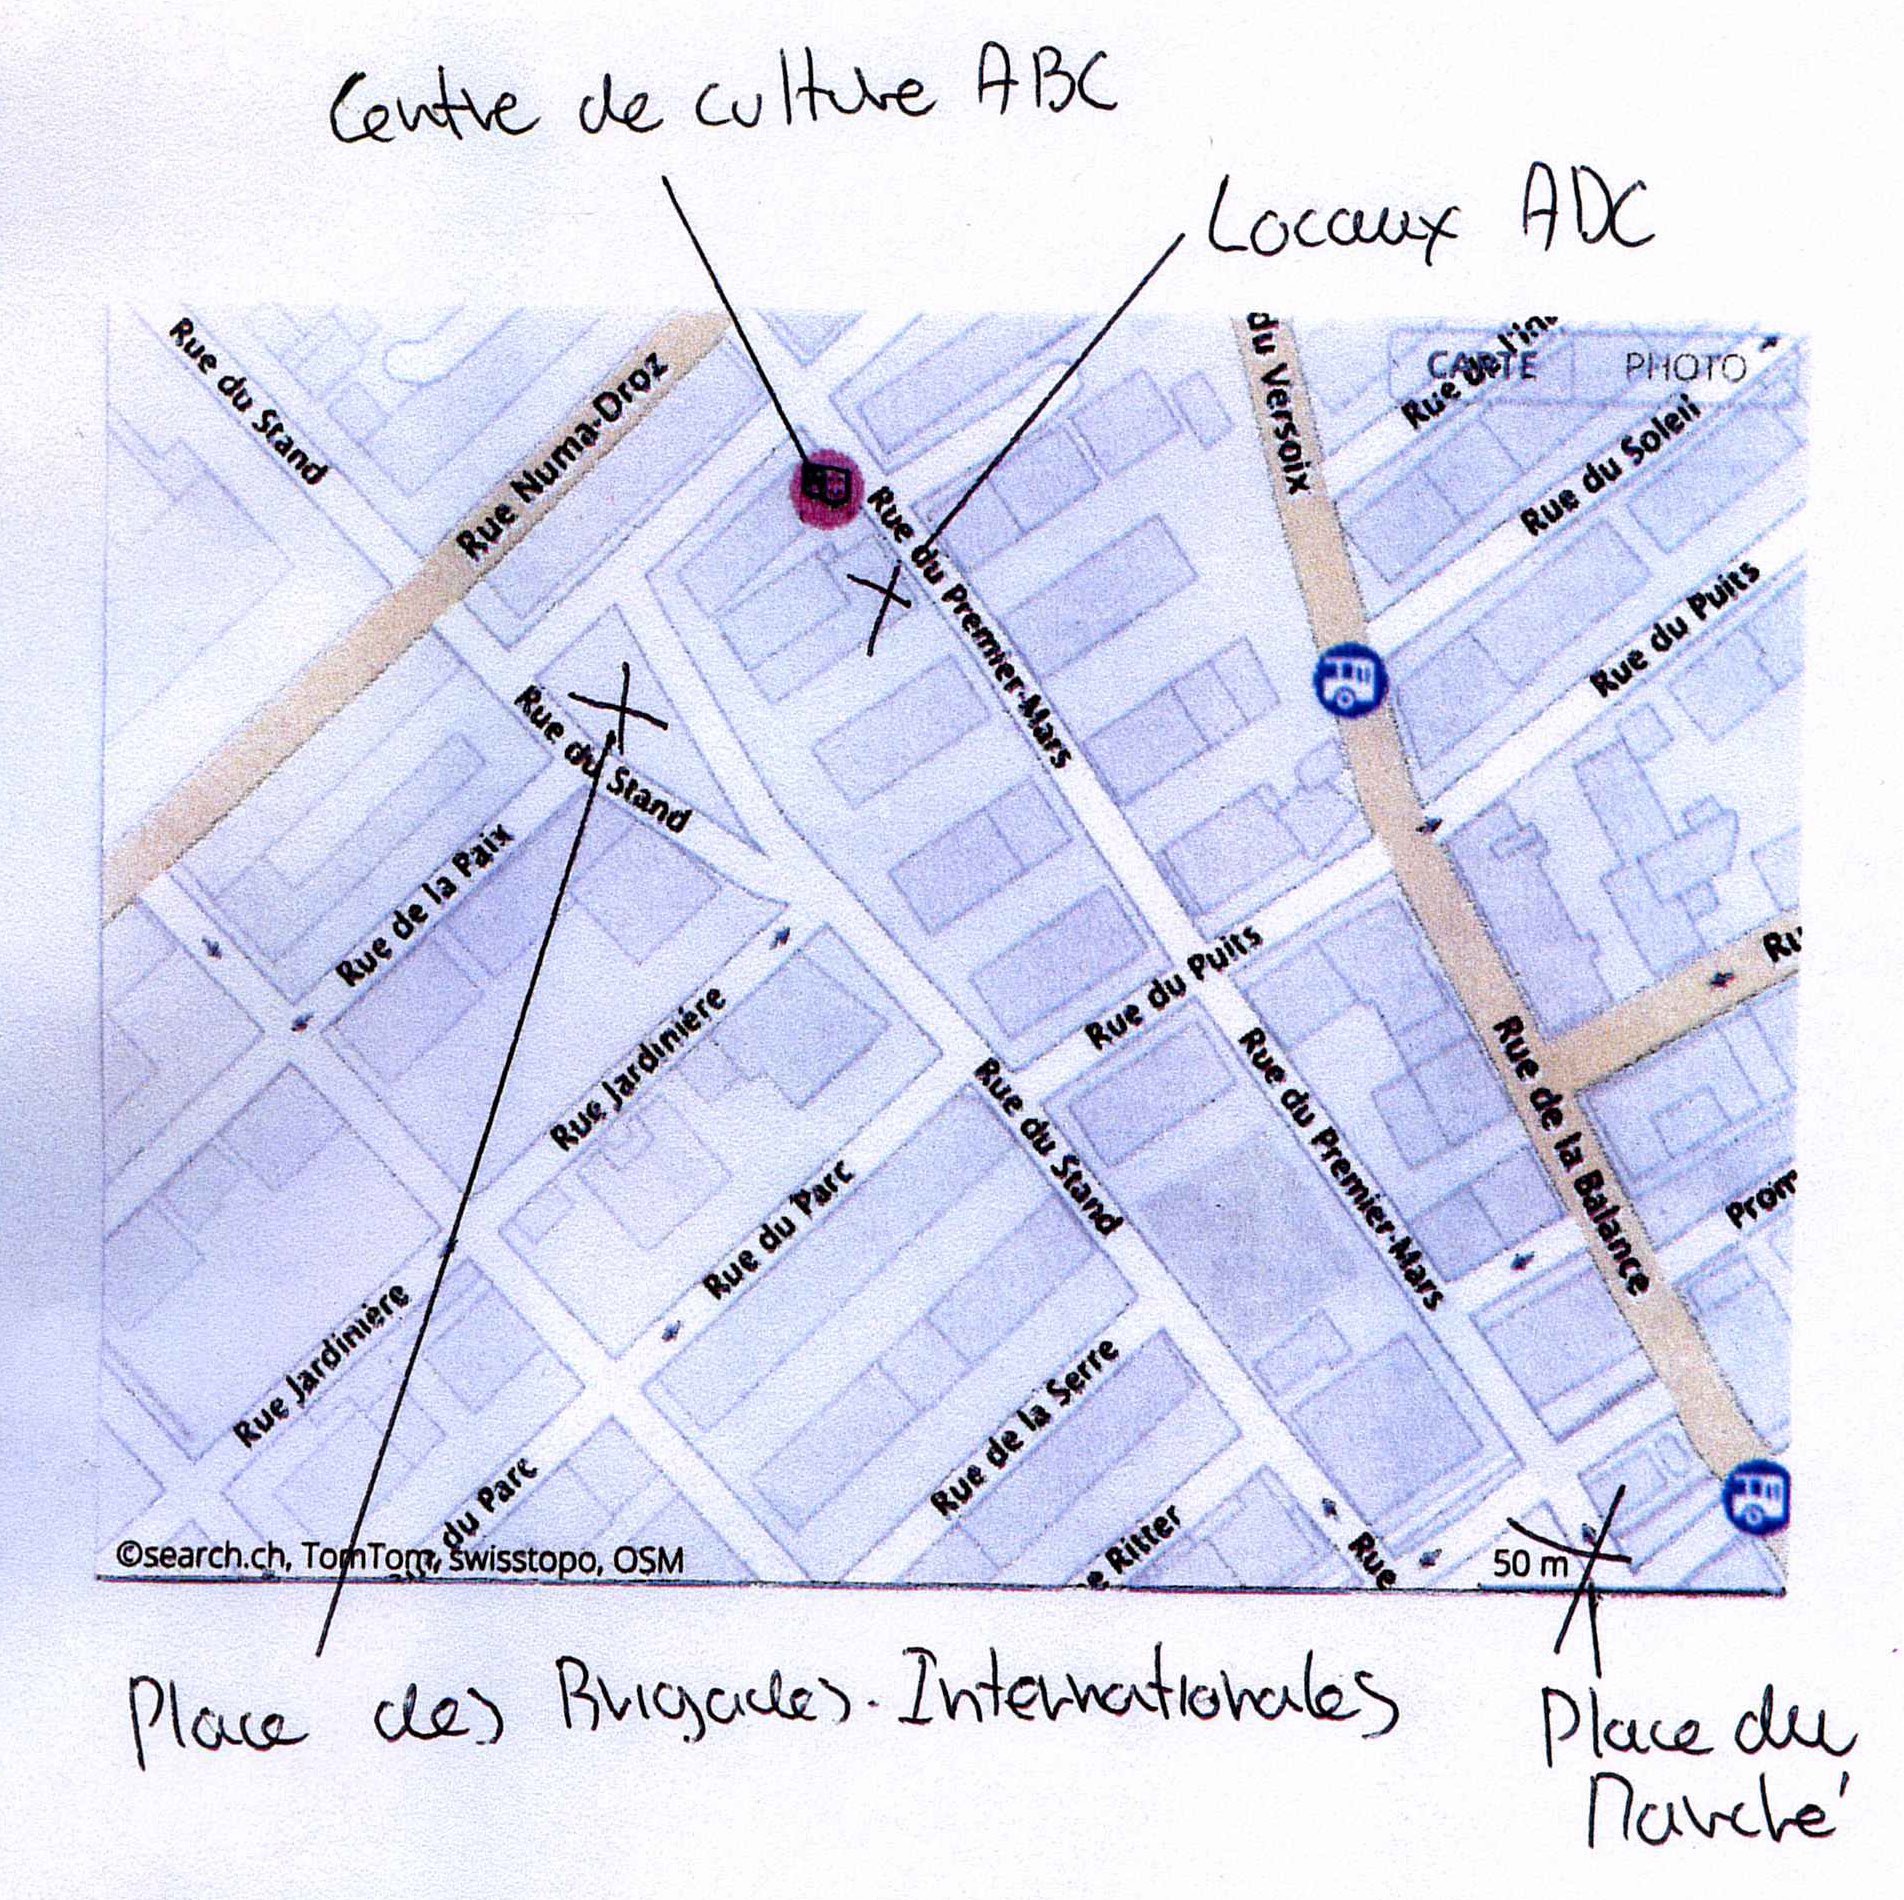 Centre de culture ABC
Locaux ADC
Rue du Stand
Rue Numa-Droz
du Versoix
CARTE
PHOTO
Rue de l'in
Rue du Soleil
Rue du Premier-Mars
Rue du Puits
Rue du Stand
Rue de la Paix
Rue du Puits
Rue Jardinière
Rue du Stand
Rue du Premier-Mars
Rue de la Balance
Ru
Prom
Rue du Parc
Rue Jardinière
Rue de la Serre
du Parc
e Ritter
Rue
©search.ch, TomTom, swisstopo, OSM
50 m
Place des Brigades-Internationales
Place du
Marché